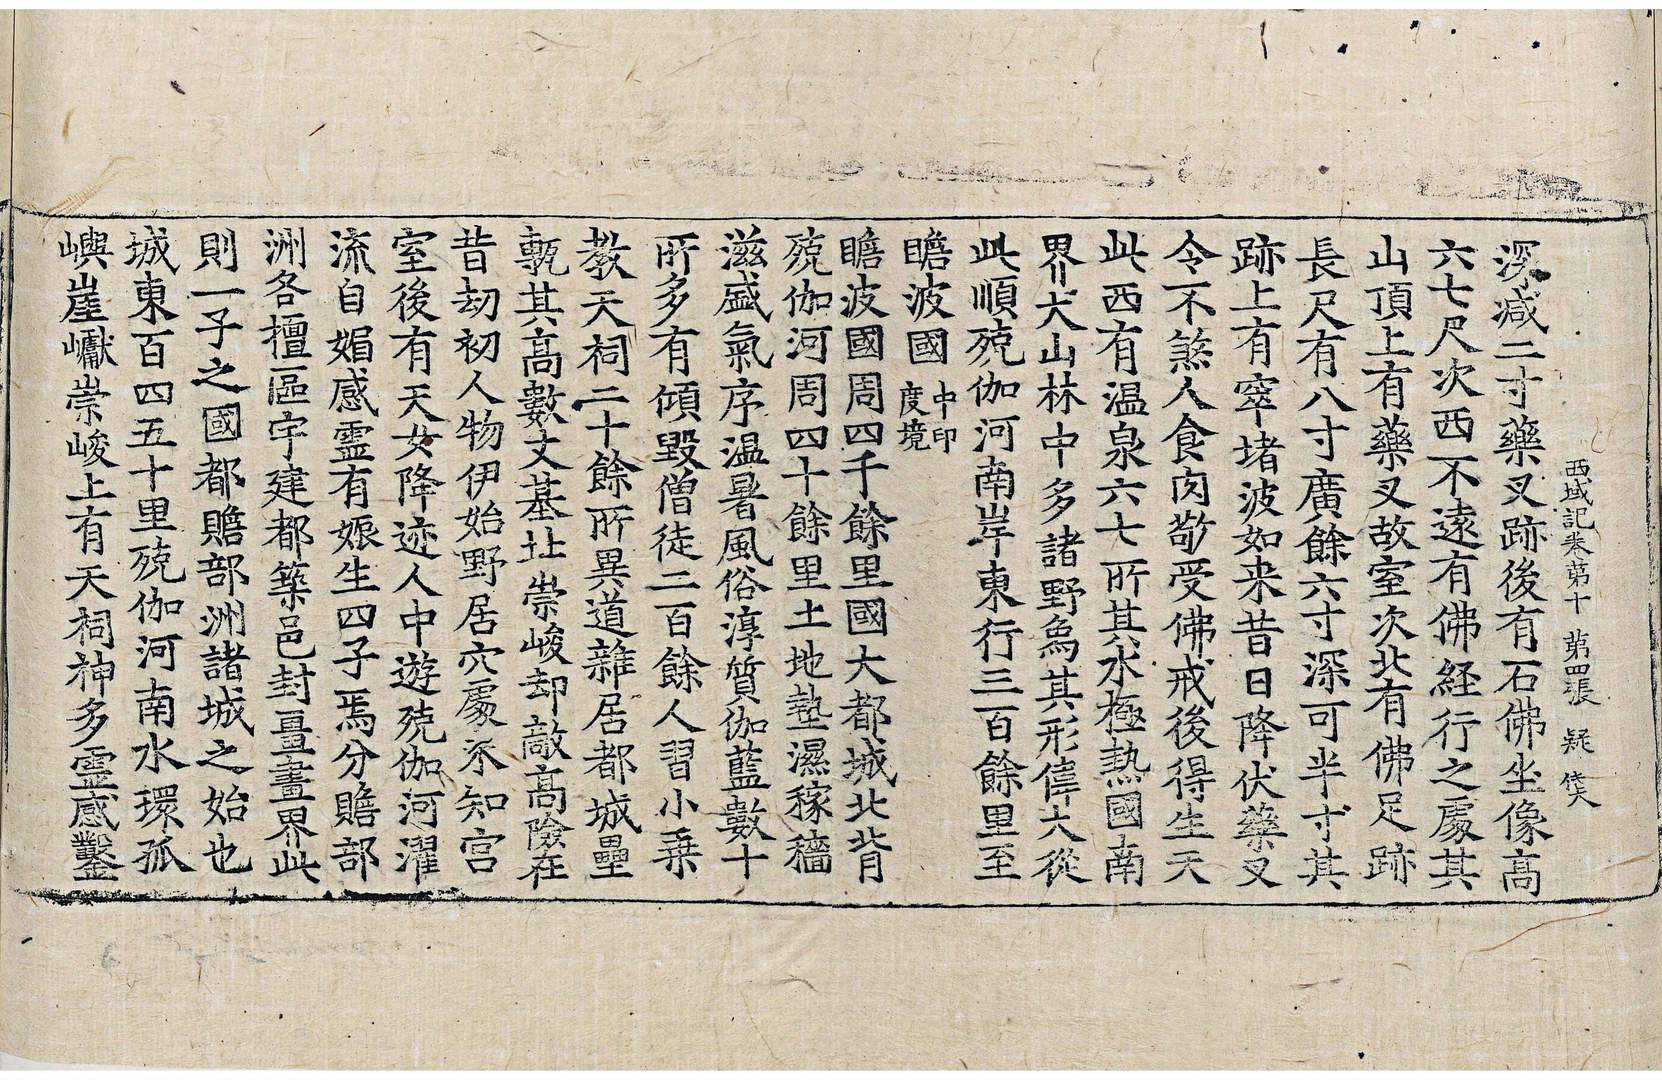 西域記卷苐十 苐四張 疑
深減二寸藥叉跡後有石佛坐像高
六七尺次西不遠有佛経行之處其
山頂上有藥叉故室次北有佛足跡
長尺有八寸廣餘六寸深可半寸其
跡上有窣堵波如来昔日降伏藥叉
令不煞人食肉敬受佛戒後得生天
此西有温泉六七所其水極熱國南
界大山林中多諸野象其形偉大從
此順殑伽河南岸東行三百餘里至
瞻波國 中印度境
瞻波國周四千餘里國大都城北背
殑伽河周四十餘里土地墊濕稼穡
滋盛氣序温暑風俗淳質伽藍數十
所多有傾毀僧徒二百餘人習小乗
教天祠二十餘所異道雜居都城壘
甎其高數丈基址崇峻却敵高險在
昔劫初人物伊始野居穴處未知宮
室後有天女降迹人中遊殑伽河濯
流自媚感霊有娠生四子焉分贍部
洲各擅區宇建都築邑封畺畫界此
則一子之國都贍部洲諸城之始也
城東百四五十里殑伽河南水環孤
嶼崖巘崇峻上有天祠神多霊感鑿